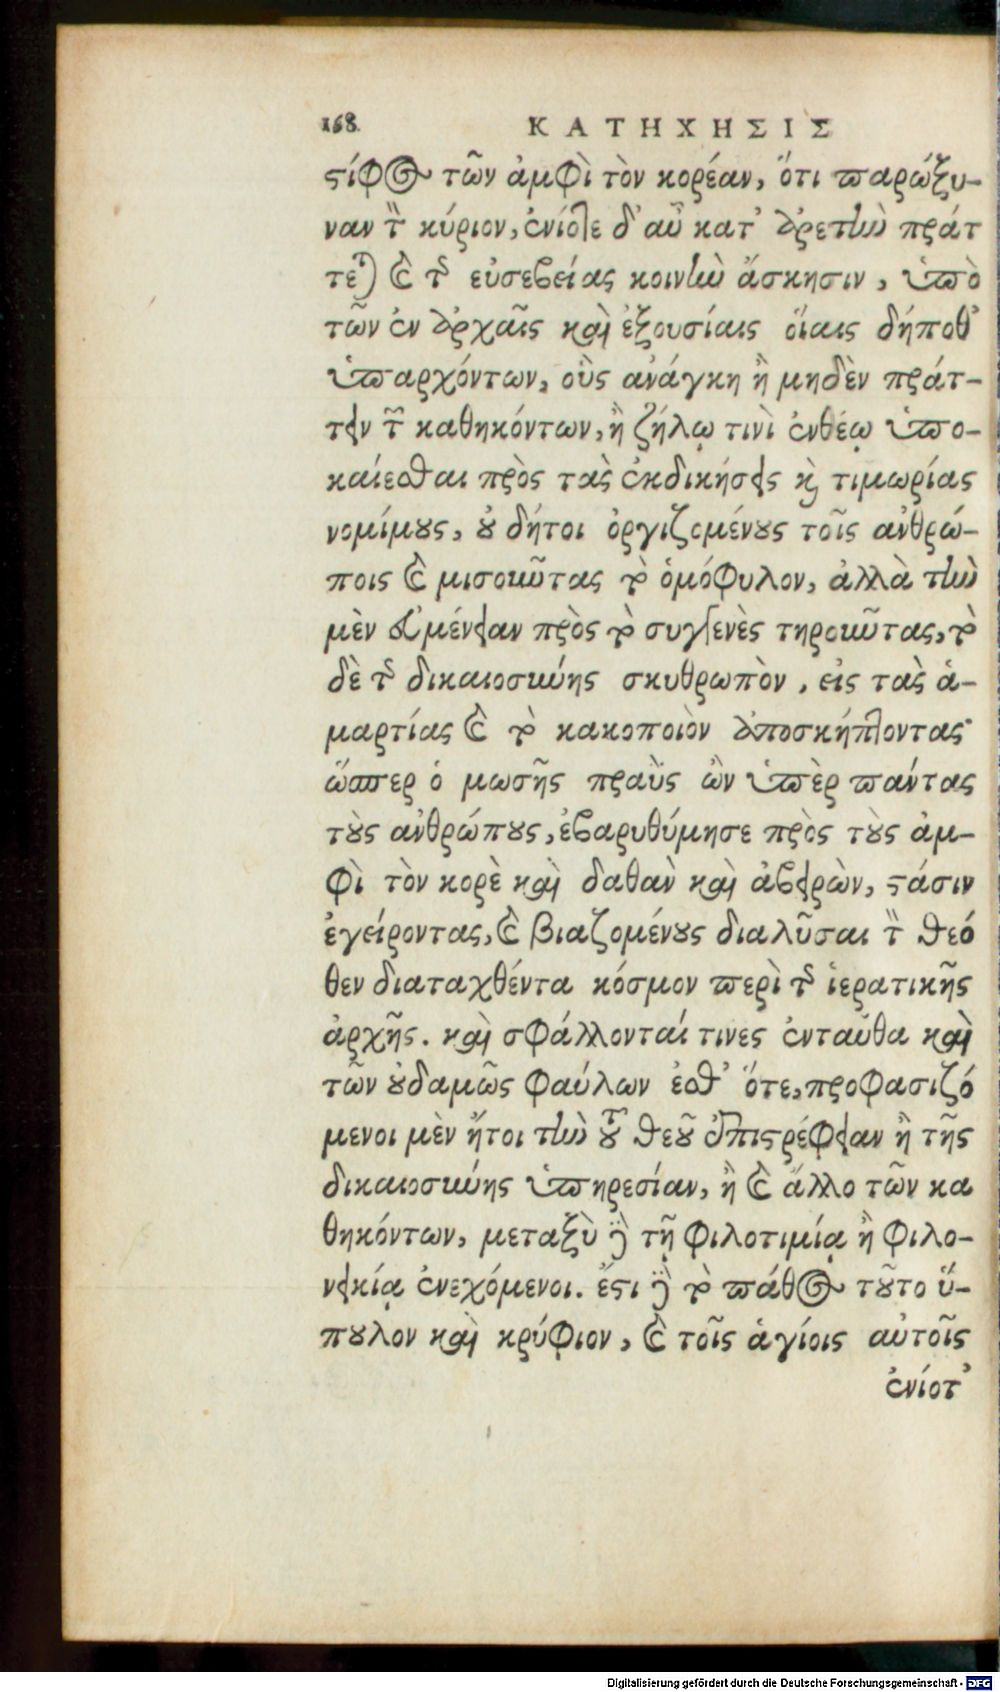 168. ΚΑΤΗΧΗΣΙΣ
στίφος τῶν ἀμφὶ τὸν κορέαν, ὅτι παρώξυ-
ναν τὸν κύριον, ἐνίοτε δ' αὖ κατ' ἀρετὴν πράτ
τεται καὶ τῆς εὐσεβείας κοινὴν ἄσκησιν, ὑπὸ
τῶν ἐν ἀρχαῖς καὶ ἐξουσίαις οἵαις δήποθ'
ὑπαρχόντων, οὓς ἀνάγκη ἢ μηδὲν πράτ-
τειν τῶν καθηκόντων, ἢ ζήλῳ τινὶ ἐνθέῳ ὑπο-
καίεσθαι πρὸς τὰς ἐκδικήσεις καὶ τιμωρίας
νομίμους, οὐ δήτοι ὀργιζομένους τοῖς ἀνθρώ-
ποις καὶ μισοῦντας τὸ ὁμόφυλον, ἀλλὰ τὴν
μὲν εὐμένειαν πρὸς τὸ συγγενὲς τηροῦντας, τὸ
δὲ τῆς δικαιοσύνης σκυθρωπὸν, εἰς τὰς ἁ-
μαρτίας καὶ τὸ κακοποιὸν ἀποσκήπτοντας
ὥσπερ ὁ μωσῆς πραῢς ὢν ὑπὲρ πάντας
τοὺς ἀνθρώπους, ἐβαρυθύμησε πρὸς τοὺς ἀμ-
φὶ τὸν κορὲ καὶ δαθὰν καὶ ἀβειρὼν, στάσιν
ἐγείροντας, καὶ βιαζομένους διαλῦσαι τὸν θεό
θεν διαταχθέντα κόσμον περὶ τῆς ἱερατικῆς
ἀρχῆς. καὶ σφάλλονταί τινες ἐνταῦθα καὶ
τῶν οὐδαμῶς φαύλων ἐσθ' ὅτε, προφασιζό
μενοι μὲν ἤτοι τὴν τοῦ θεοῦ ἐπιστρέφειαν ἢ τῆς
δικαιοσύνης ὑπηρεσίαν, ἢ καὶ ἄλλο τῶν κα
θηκόντων, μεταξὺ δὲ τῇ φιλοτιμίᾳ ἢ φιλο-
νεικίᾳ ἐνεχόμενοι. ἔστι δὲ τὸ πάθος τοῦτο ὕ-
πουλον καὶ κρύφιον, καὶ τοῖς ἁγίοις αὐτοῖς
ἐνίοτ'
Digitalisierung gefördert durch die Deutsche Forschungsgemeinschaft - DFG